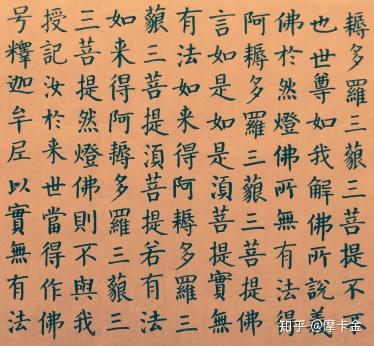 耨多羅三藐三菩提不不
也世尊如我解佛所說義
佛於然燈佛所無有法得
阿耨多羅三藐三菩提佛
言如是如是湏菩提實無
有法如来得阿耨多羅三
藐三菩提湏菩提若有法
如来得阿耨多羅三藐三
三菩提然燈佛則不與我
授記汝於来世當得作佛
号釋迦牟尼以實無有法
知乎 @摩卡金